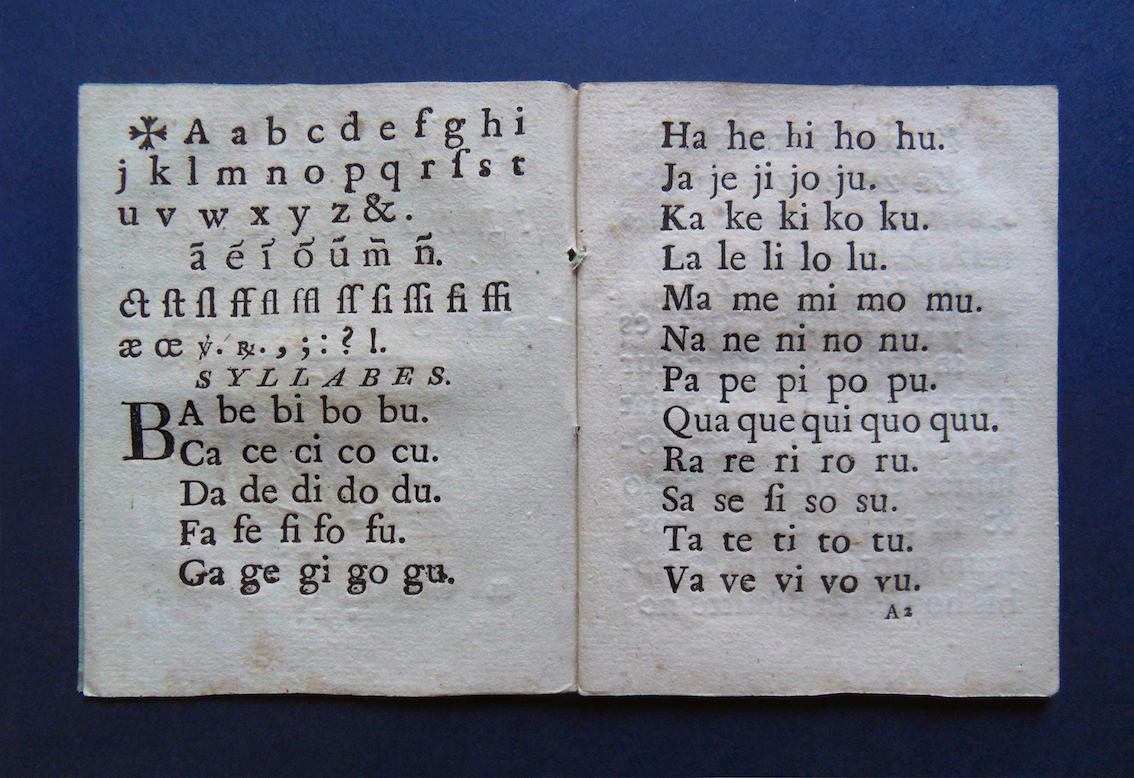 ✠ A a b c d e f g h i
j k l m n o p q r ſ s t
u v w x y z & .
ã ẽ ĩ õ ũ m̃ ñ.
ct ſt ſl ff fl ffl ſſ ſi ſſi fi ffi
æ œ ℣. ℞. , ; : ? !.
SYLLABES.
BA be bi bo bu.
Ca ce ci co cu.
Da de di do du.
Fa fe fi fo fu.
Ga ge gi go gu.
Ha he hi ho hu.
Ja je ji jo ju.
Ka ke ki ko ku.
La le li lo lu.
Ma me mi mo mu.
Na ne ni no nu.
Pa pe pi po pu.
Qua que qui quo quu.
Ra re ri ro ru.
Sa se ſi so su.
Ta te ti to tu.
Va ve vi vo vu.
A2